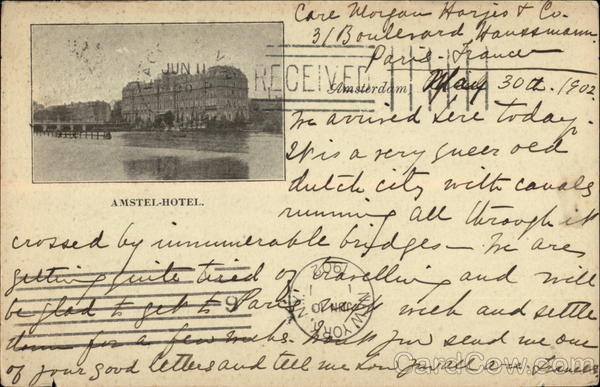 Care Morgan Harjes & Co.
31 Boulevard Haussmann.
Paris - France
JUN 11
RECEIVED
Amsterdam, May 30th. 1902.
We arrived here today.
It is a very queer old
dutch city with canals
running all through it
AMSTEL-HOTEL.
crossed by innumerable bridges - We are
getting quite tired of travelling and will
be glad to get to Paris next week and settle
down for a few weeks. Wont you send me one
of your good letters and tell me how you all are.
NEW YORK, N.Y.
JUN 10
1902
9
CardCow.com